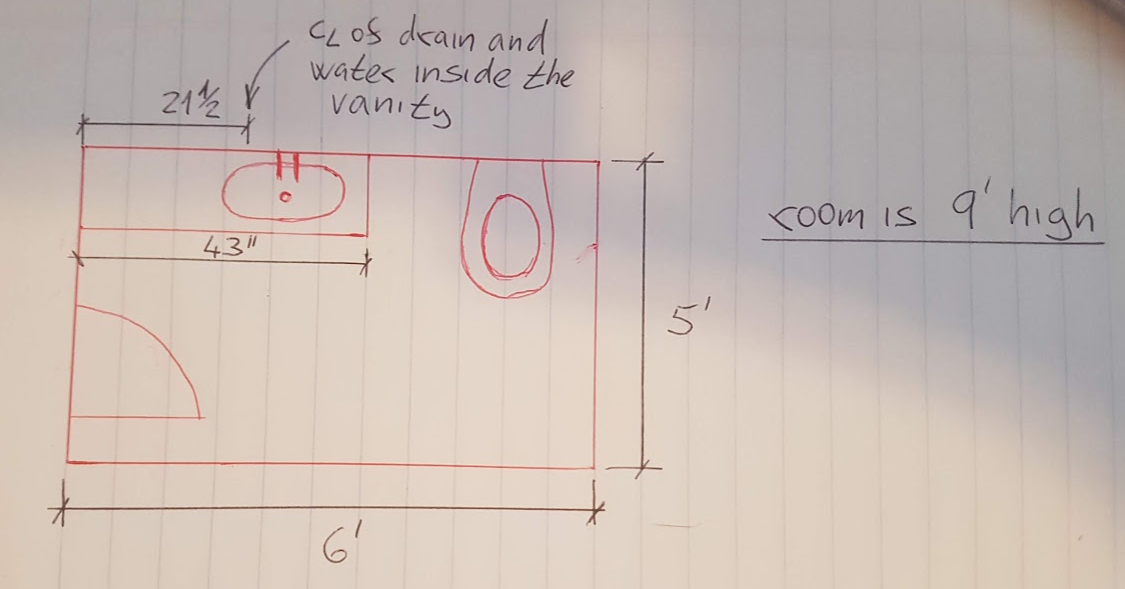 CL OS drain and
water inside the
vanity
21 1/2
43"
5'
6'
room is 9' high